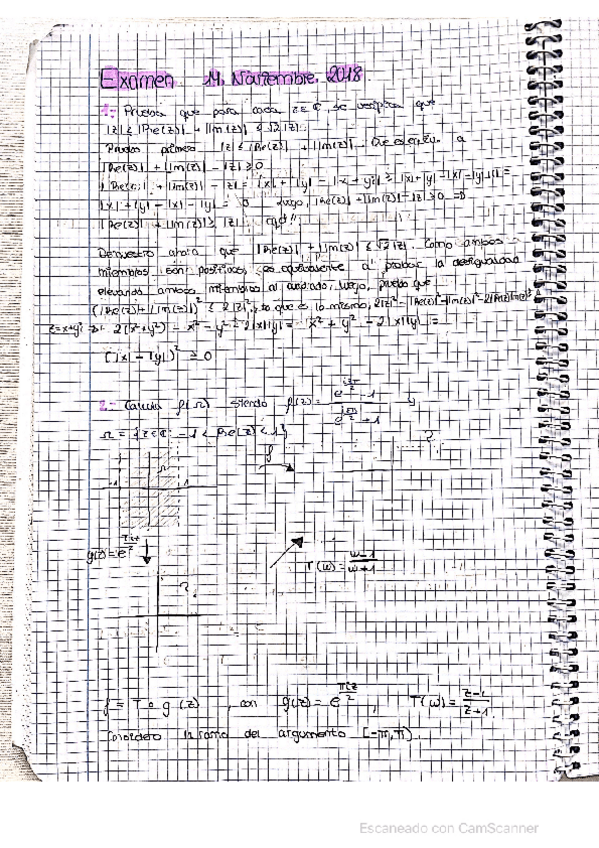 Examen 14 Noviembre 2018
1.- Prueba que para cada z ∈ ℂ, se verifica que
|z| ≤ |Re(z)| + |Im(z)| ≤ √2 |z|.
Pruebo primero |z| ≤ |Re(z)| + |Im(z)|. Que es equiv. a
|Re(z)| + |Im(z)| - |z| ≥ 0
|Re(z)| + |Im(z)| - |z| = |x| + |y| - |x + yi| ≥ |x| + |y| - |x| - |y| |i| =
|x| + |y| - |x| - |y| = 0 luego, |Re(z)| + |Im(z)| - |z| ≥ 0 ⇒
|Re(z)| + |Im(z)| ≥ |z| cqd!!
Demuestro ahora que |Re(z)| + |Im(z)| ≤ √2 |z|. Como ambos
miembros son positivos, es equivalente a probar la desigualdad
elevando ambos miembros al cuadrado, luego, pruebo que
(|Re(z)| + |Im(z)|)² ≤ 2|z|², o lo que es lo mismo, 2|z|² - |Re(z)|² - |Im(z)|² - 2|Re(z)||Im(z)| ≥ 0
z = x + yi ⇒ 2(x² + y²) - x² - y² - 2|x||y| = x² + y² - 2|x||y| =
(|x| - |y|)² ≥ 0
2.- Calcula f(Ω) siendo f(z) = y
Ω = {z ∈ ℂ: -1 < Re(z) < 1}
Ω
f
?
-1
1
g(z) = e^(πiz/2)
T(w) = (w-1)/(w+1)
?
f = T ∘ g (z) , con g(z) = e^(πiz/2) , T(w) =
Considero la rama del argumento [-π, π).
Escaneado con CamScanner